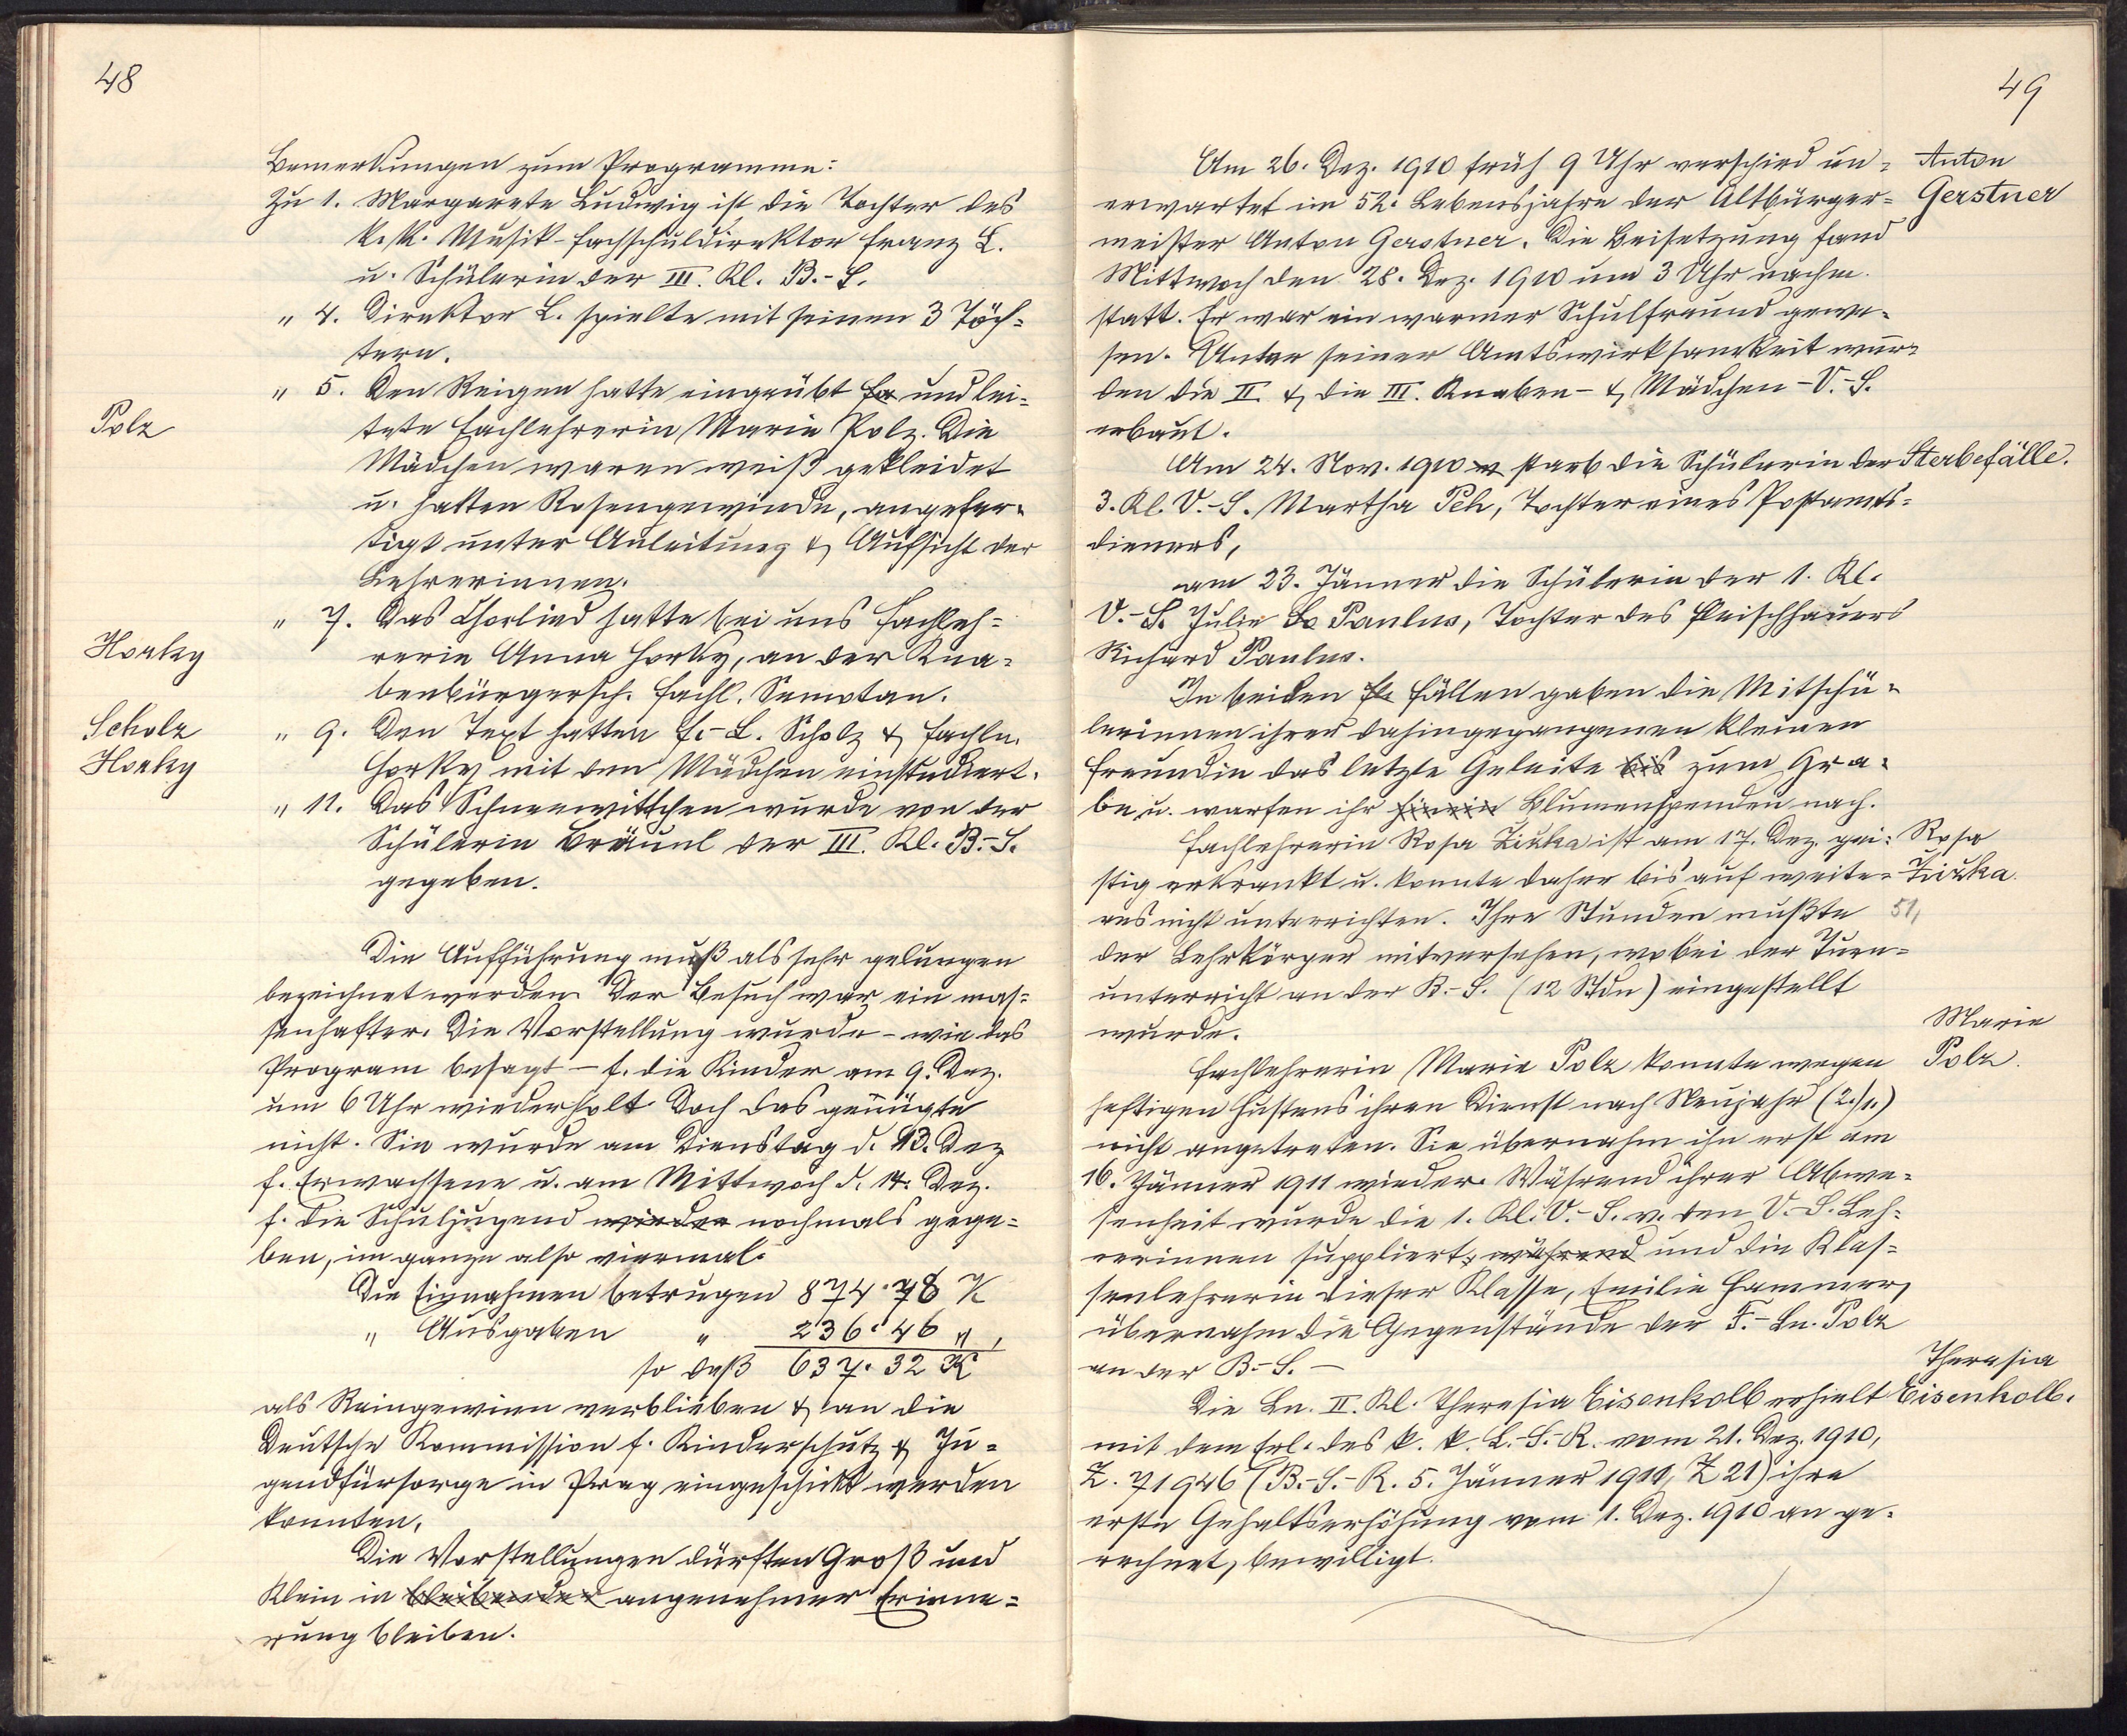 48
Bemerkungen zum Programme:
Zu 1. Margarete Ludwig ist die Tochter des
k. k. Musik-Fachschuldirektor Franz L.
u. Schülerin der III. Kl. B.-S.
" 4. Direktor L. spielte mit seinen 3 Töch-
tern.
" 5. Den Reigen hatte eingeübt und lei-
Polz
tete Fachlehrerin Marie Polz. Die
Mädchen waren weiß gekleidet
u. hatten Rosengewinde, angefer-
tigt unter Anleitung & Aufsicht der
Lehrerinnen.
" 7. Das Chorlied hatte bei uns Fachleh-
Horky
rerin Anna Horky, an der Kna-
benbürgersch. Fachl. Semotan.
Scholz
" 9. Den Text hatten F.-L. Scholz & Fachln.
Horky
Horky mit den Mädchen einstudiert.
" 11. Das Schneewittchen wurde von der
Schülerin Bräunl der III. Kl. B.-S.
gegeben.
Die Aufführung muß als sehr gelungen
bezeichnet werden. Der Besuch war ein mas-
senhafter. Die Vorstellung wurde - wie das
Program besagt - f. die Kinder am 9. Dez.
um 6 Uhr wiederholt. Doch das genügte
nicht. Sie wurde am Dienstag d. 13. Dez
f. Erwachsene u. am Mittwoch d. 14. Dez.
f. die Schuljugend wieder nochmals gege-
ben, im ganzen also viermal.
Die Einnahmen betrugen 874·78 K
" Ausgaben " 236·46 ",
so daß 637·32 K
als Reingewinn verblieben & an die
Deutsche Kommission f. Kinderschutz & Ju-
gendfürsorge in Prag eingeschickt werden
konnten.
Die Vorstellungen dürften Groß und
Klein in bleibender angenehmer Erinne-
rung bleiben.
49
Am 26. Dez. 1910 früh 9 Uhr verschied un-
Anton
erwartet im 52. Lebensjahre der Altbürger-
Gerstner
meister Anton Gerstner. Die Beisetzung fand
Mittwoch den 28. Dez. 1910 um 3 Uhr nachm.
statt. Er war ein warmer Schulfreund gewe-
sen. Unter seiner Amtswirksamkeit wur-
den die II. & die III. Knaben- & Mädchen-V.-S.
erbaut.
Am 24. Nov. 1910 starb die Schülerin der
Sterbefälle.
3. Kl. V.-S. Martha Peh, Tochter eines Postamts-
dieners,
am 23. Jänner die Schülerin der 1. Kl.
V.-S. Julie Paulus, Tochter des Fleischhauers
Richard Paulus.
In beiden Fällen gaben die Mitschü-
lerinnen ihrer dahingegangenen kleinen
Freundin das letzte Geleite bis zum Gra-
be u. warfen ihr hinein Blumenspenden nach.
Fachlehrerin Rosa Zizka ist am 17. Dez. gei-
Rosa
stig erkrankt u. konnte daher bis auf weite-
Zizka.
res nicht unterrichten. Ihre Stunden mußte
51,
der Lehrkörper mitversehen, wobei der Turn-
unterricht an der B.-S. (12 Stdn) eingestellt
wurde.
Marie
Fachlehrerin Marie Polz konnte wegen
Polz.
heftigen Hustens ihren Dienst nach Neujahr (2./1.)
nicht angetreten. Sie übernahm ihn erst am
16. Jänner 1911 wieder. Während ihrer Abwe-
senheit wurde die 1. Kl. V.-S. v. den V.-S. Leh-
rerinnen suppliert, während und die Klas-
senlehrerin dieser Klasse, Emilie Hammer,
übernahm die Gegenstände der F.-Ln. Polz
an der B.-S. -
Theresia
Die Ln. II. Kl. Theresia Eisenkolb erhielt
Eisenkolb.
mit dem Erl. des k. k. L.-S.-R. vom 21. Dez. 1910,
Z. 71946 (B.-S.-R. 5. Jänner 1911, Z 21) ihre
erste Gehaltserhöhung vom 1. Dez. 1910 an ge-
rechnet, bewilligt.